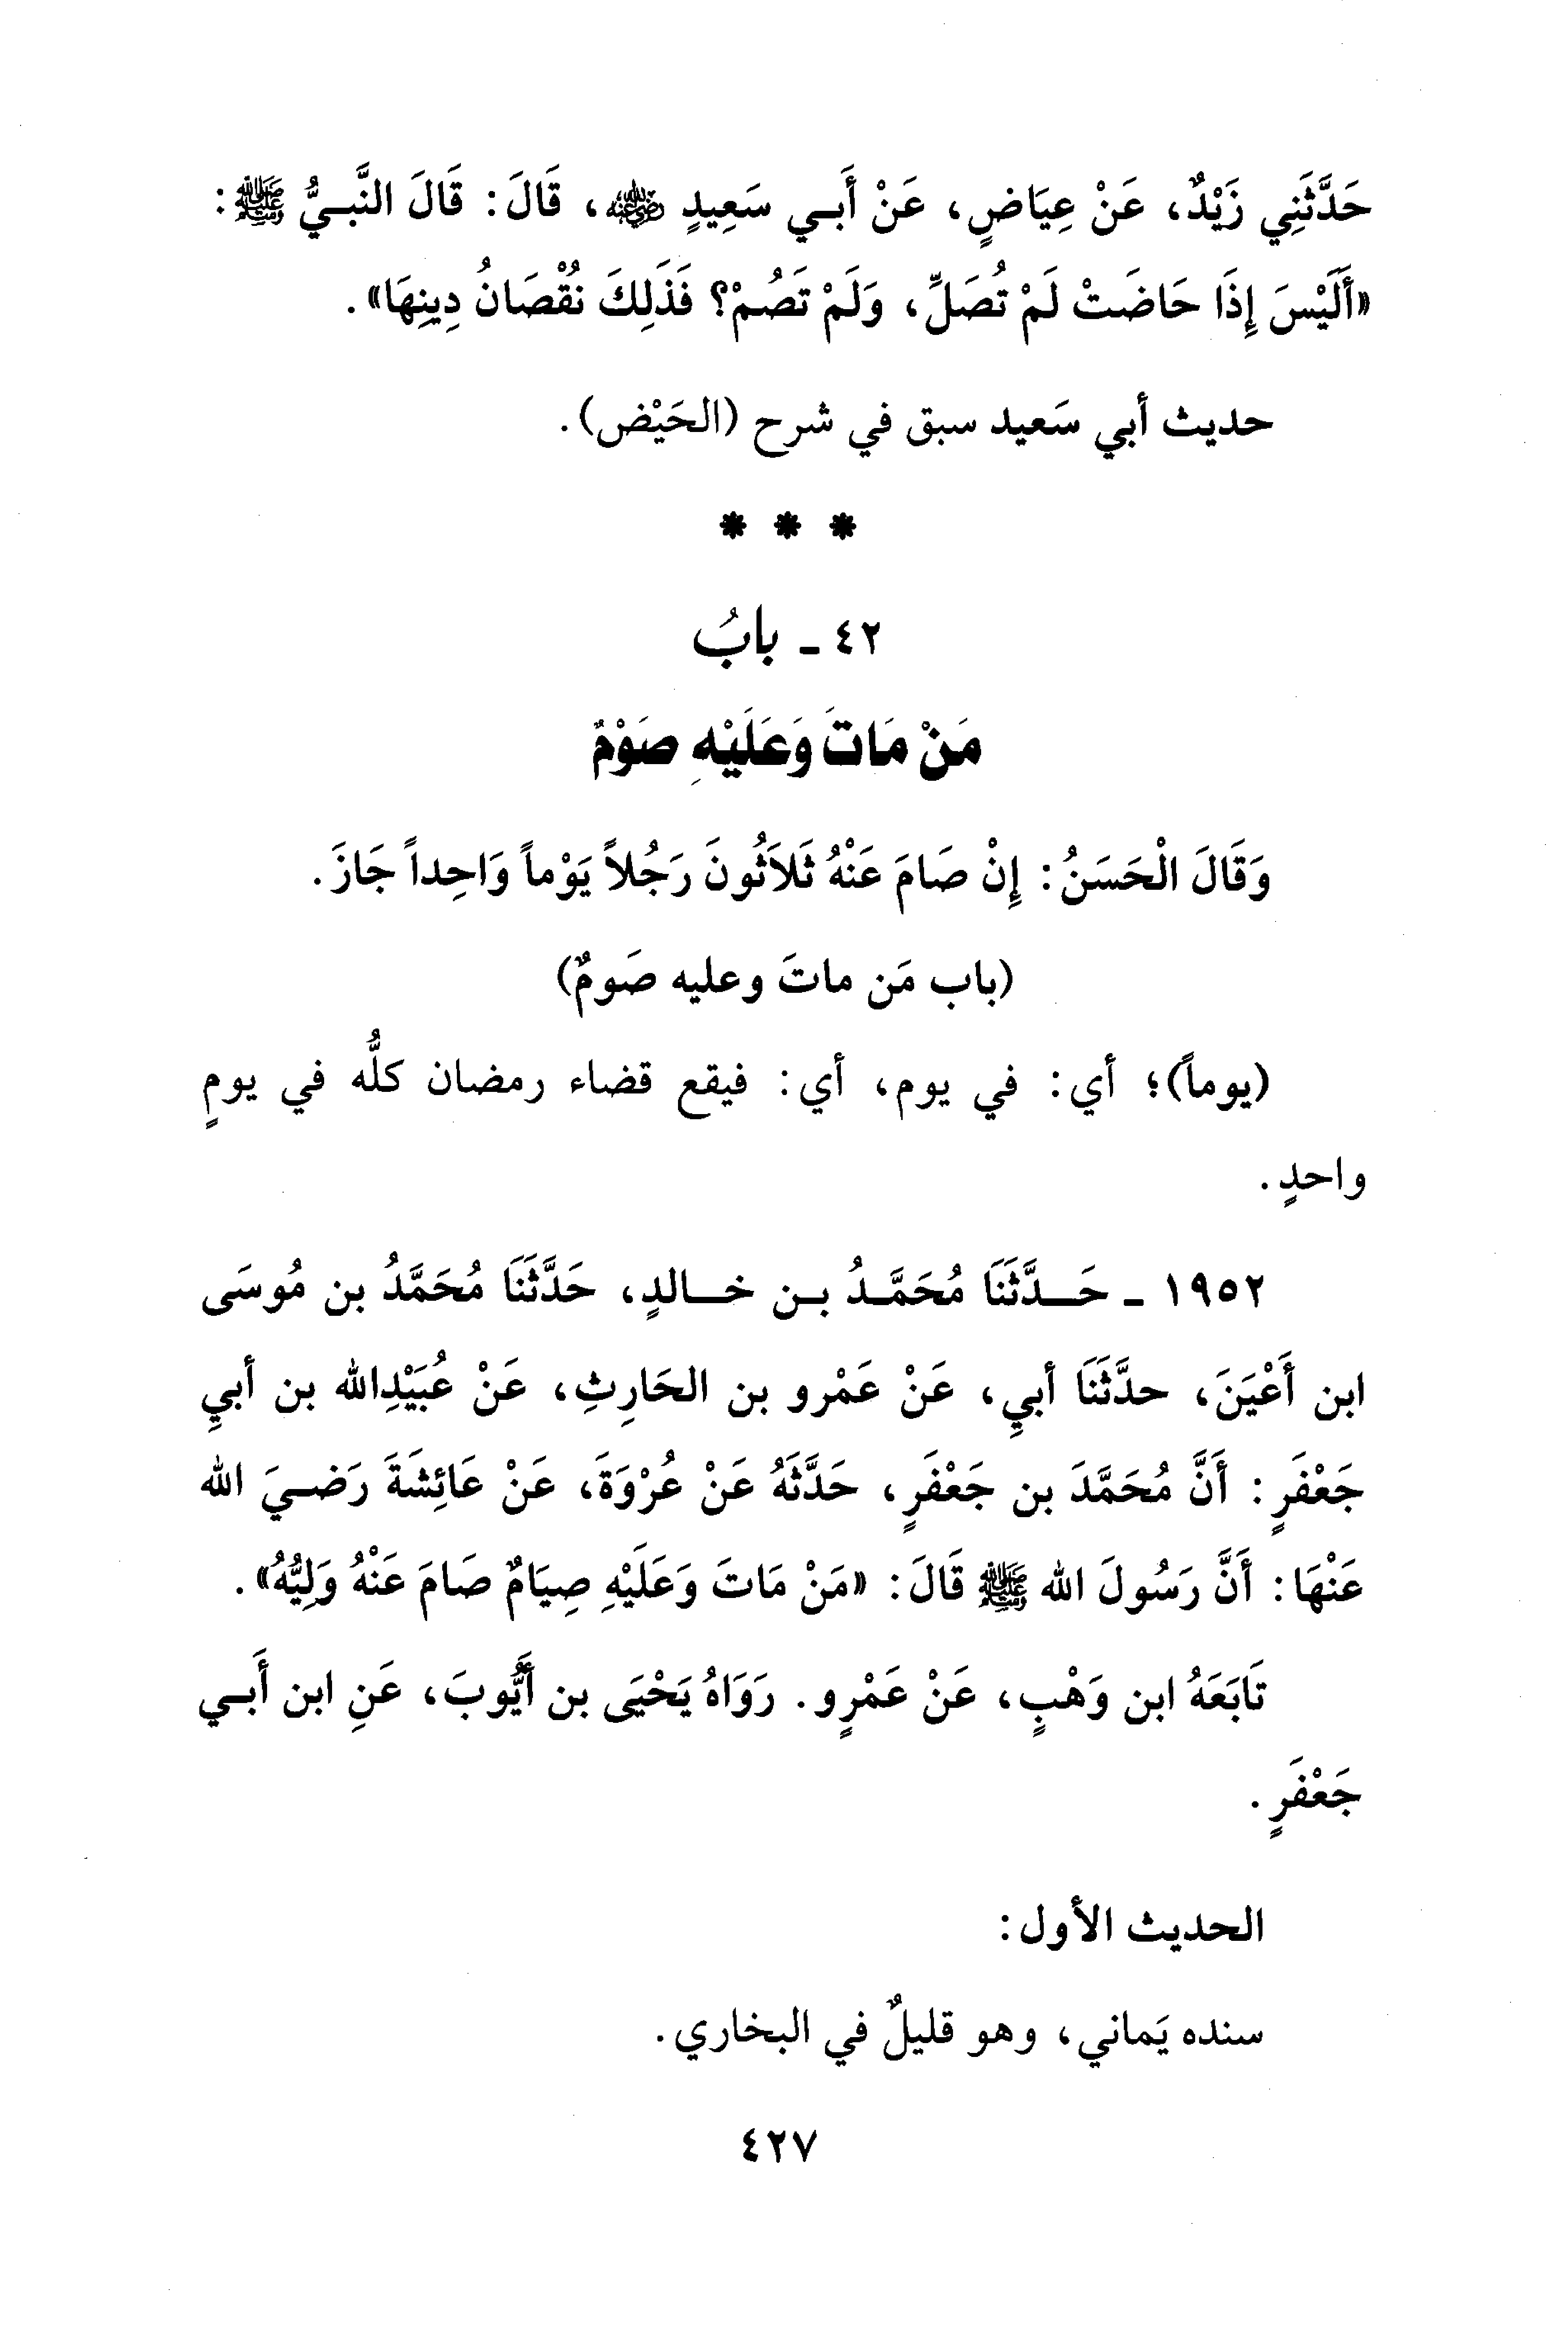 حَدَّثَنِي زَيْدٌ، عَنْ عِيَاضٍ، عَنْ أَبِي سَعِيدٍ ﵁، قَالَ: قَالَ النَّبِيُّ ﷺ:
«أَلَيْسَ إِذَا حَاضَتْ لَمْ تُصَلِّ، وَلَمْ تَصُمْ؟ فَذَلِكَ نُقْصَانُ دِينِهَا».
حديث أبي سَعيد سبق في شرح (الحَيْض).
* * *
٤٢ - بابُ
مَنْ مَاتَ وَعَلَيْهِ صَوْمٌ
وَقَالَ الْحَسَنُ: إِنْ صَامَ عَنْهُ ثَلاَثُونَ رَجُلاً يَوْماً وَاحِداً جَازَ.
(باب مَن ماتَ وعليه صَومٌ)
(يوماً)؛ أي: في يوم، أي: فيقع قضاء رمضان كلُّه في يومٍ
واحدٍ.
١٩٥٢ - حَدَّثَنَا مُحَمَّدُ بن خالدٍ، حَدَّثَنَا مُحَمَّدُ بن مُوسَى
ابن أَعْيَنَ، حدَّثَنَا أبيِ، عَنْ عَمْرو بن الحَارِثِ، عَنْ عُبَيْدِالله بن أبيِ
جَعْفَرٍ: أَنَّ مُحَمَّدَ بن جَعْفَرٍ، حَدَّثَهُ عَنْ عُرْوَةَ، عَنْ عَائِشَةَ رَضيَ الله
عَنْهَا: أَنَّ رَسُولَ الله ﷺ قَالَ: «مَنْ مَاتَ وَعَلَيْهِ صِيَامٌ صَامَ عَنْهُ وَلِيُّهُ».
تَابَعَهُ ابن وَهْبٍ، عَنْ عَمْرٍو. رَوَاهُ يَحْيَى بن أَيُّوبَ، عَنِ ابن أَبي
جَعْفَرٍ.
الحديث الأول:
سنده يَماني، وهو قليلٌ في البخاري.
٤٢٧